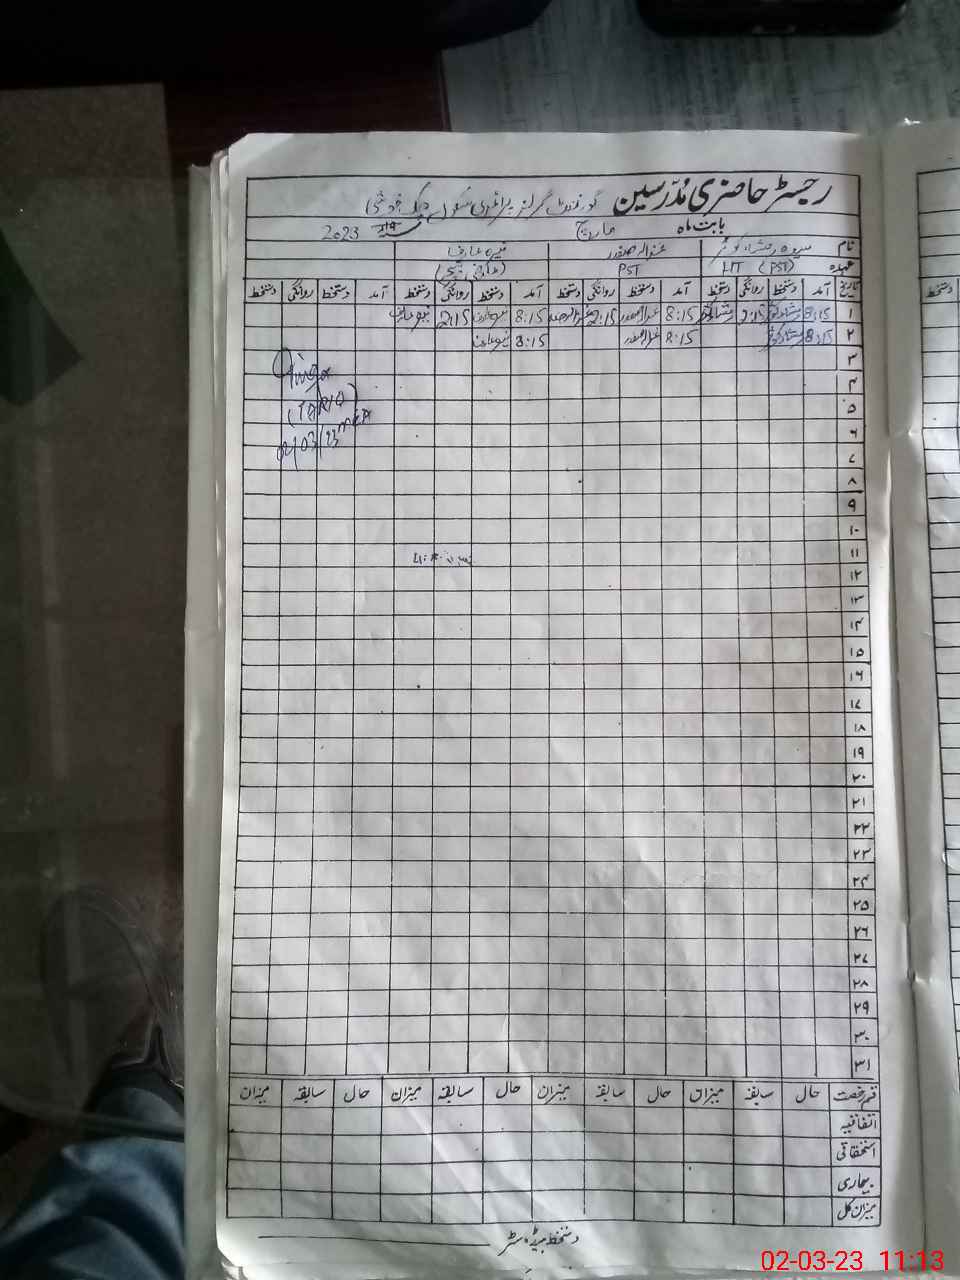 رجسٹر حاضری مُدرسین گورنمنٹ گرلز پرائمری سکول چک
بابت ماہ مارچ 2023
نام
عہدہ HT (PST) PST
تاریخ آمد دستخط روانگی دستخط آمد دستخط روانگی دستخط آمد دستخط روانگی دستخط آمد دستخط روانگی دستخط
۱ 8:15 2:15 8:15 2:15 8:15 2:15
۲ 8:15 8:15 8:15
۳
۴
۵
۶
۷
۸
۹
۱۰
۱۱
۱۲
۱۳
۱۴
۱۵
۱۶
۱۷
۱۸
۱۹
۲۰
۲۱
۲۲
۲۳
۲۴
۲۵
۲۶
۲۷
۲۸
۲۹
۳۰
۳۱
(TARIQ)
02/03/23 MEA
قسم رخصت حال سابقہ میزان حال سابقہ میزان حال سابقہ میزان حال سابقہ میزان
اتفاقیہ
استحقاقی
بیماری
میزان کل
دستخط ہیڈ مسٹر
دستخط
02-03-23 11:13